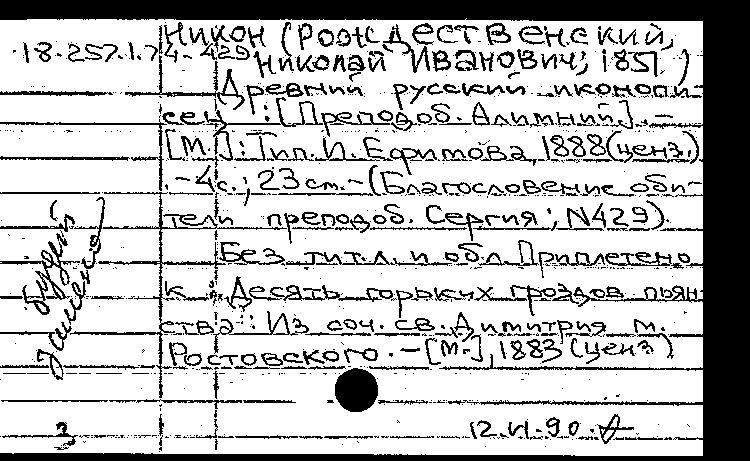 Никон (Рождественский,
18.257.1.74-429 Николай Иванович; 1851 )
Древний русский иконопи-
сец : [Преподоб. Алимпий]. —
[М.] : Тип. И. Ефимова, 1888 (ценз.)
. — 4 с. ; 23 см. — (Благословение оби-
тели преподоб. Сергия ; N429).
Без тит.л. и обл. Приплетено
к : Десять горьких гроздов пьян-
ства : Из соч. св. Димитрия м.
Ростовского. — [М.], 1883 (ценз.)
3
12.VI.90.